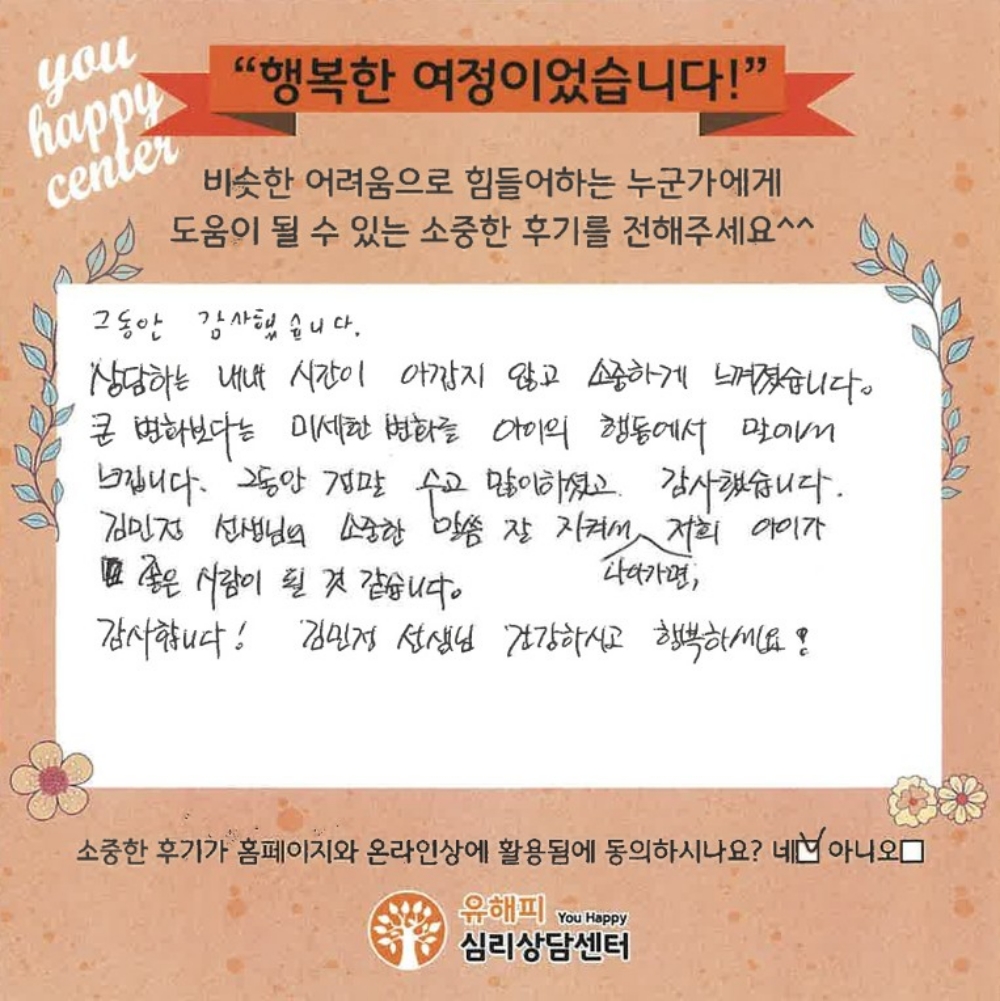 you
happy
center
“행복한 여정이었습니다!”
비슷한 어려움으로 힘들어하는 누군가에게
도움이 될 수 있는 소중한 후기를 전해주세요^^
그동안 감사했습니다.
상담하는 내내 시간이 아깝지 않고 소중하게 느껴졌습니다.
큰 변화보다는 미세한 변화를 아이의 행동에서 말에서
느낍니다. 그동안 정말 수고 많이하셨고 감사했습니다.
김민정 선생님의 소중한 말씀 잘 지켜서 저희 아이가
나아가면,
좋은 사람이 될 것 같습니다.
감사합니다! 김민정 선생님 건강하시고 행복하세요!
소중한 후기가 홈페이지와 온라인상에 활용됨에 동의하시나요? 네☑ 아니오☐
유해피 You Happy
심리상담센터